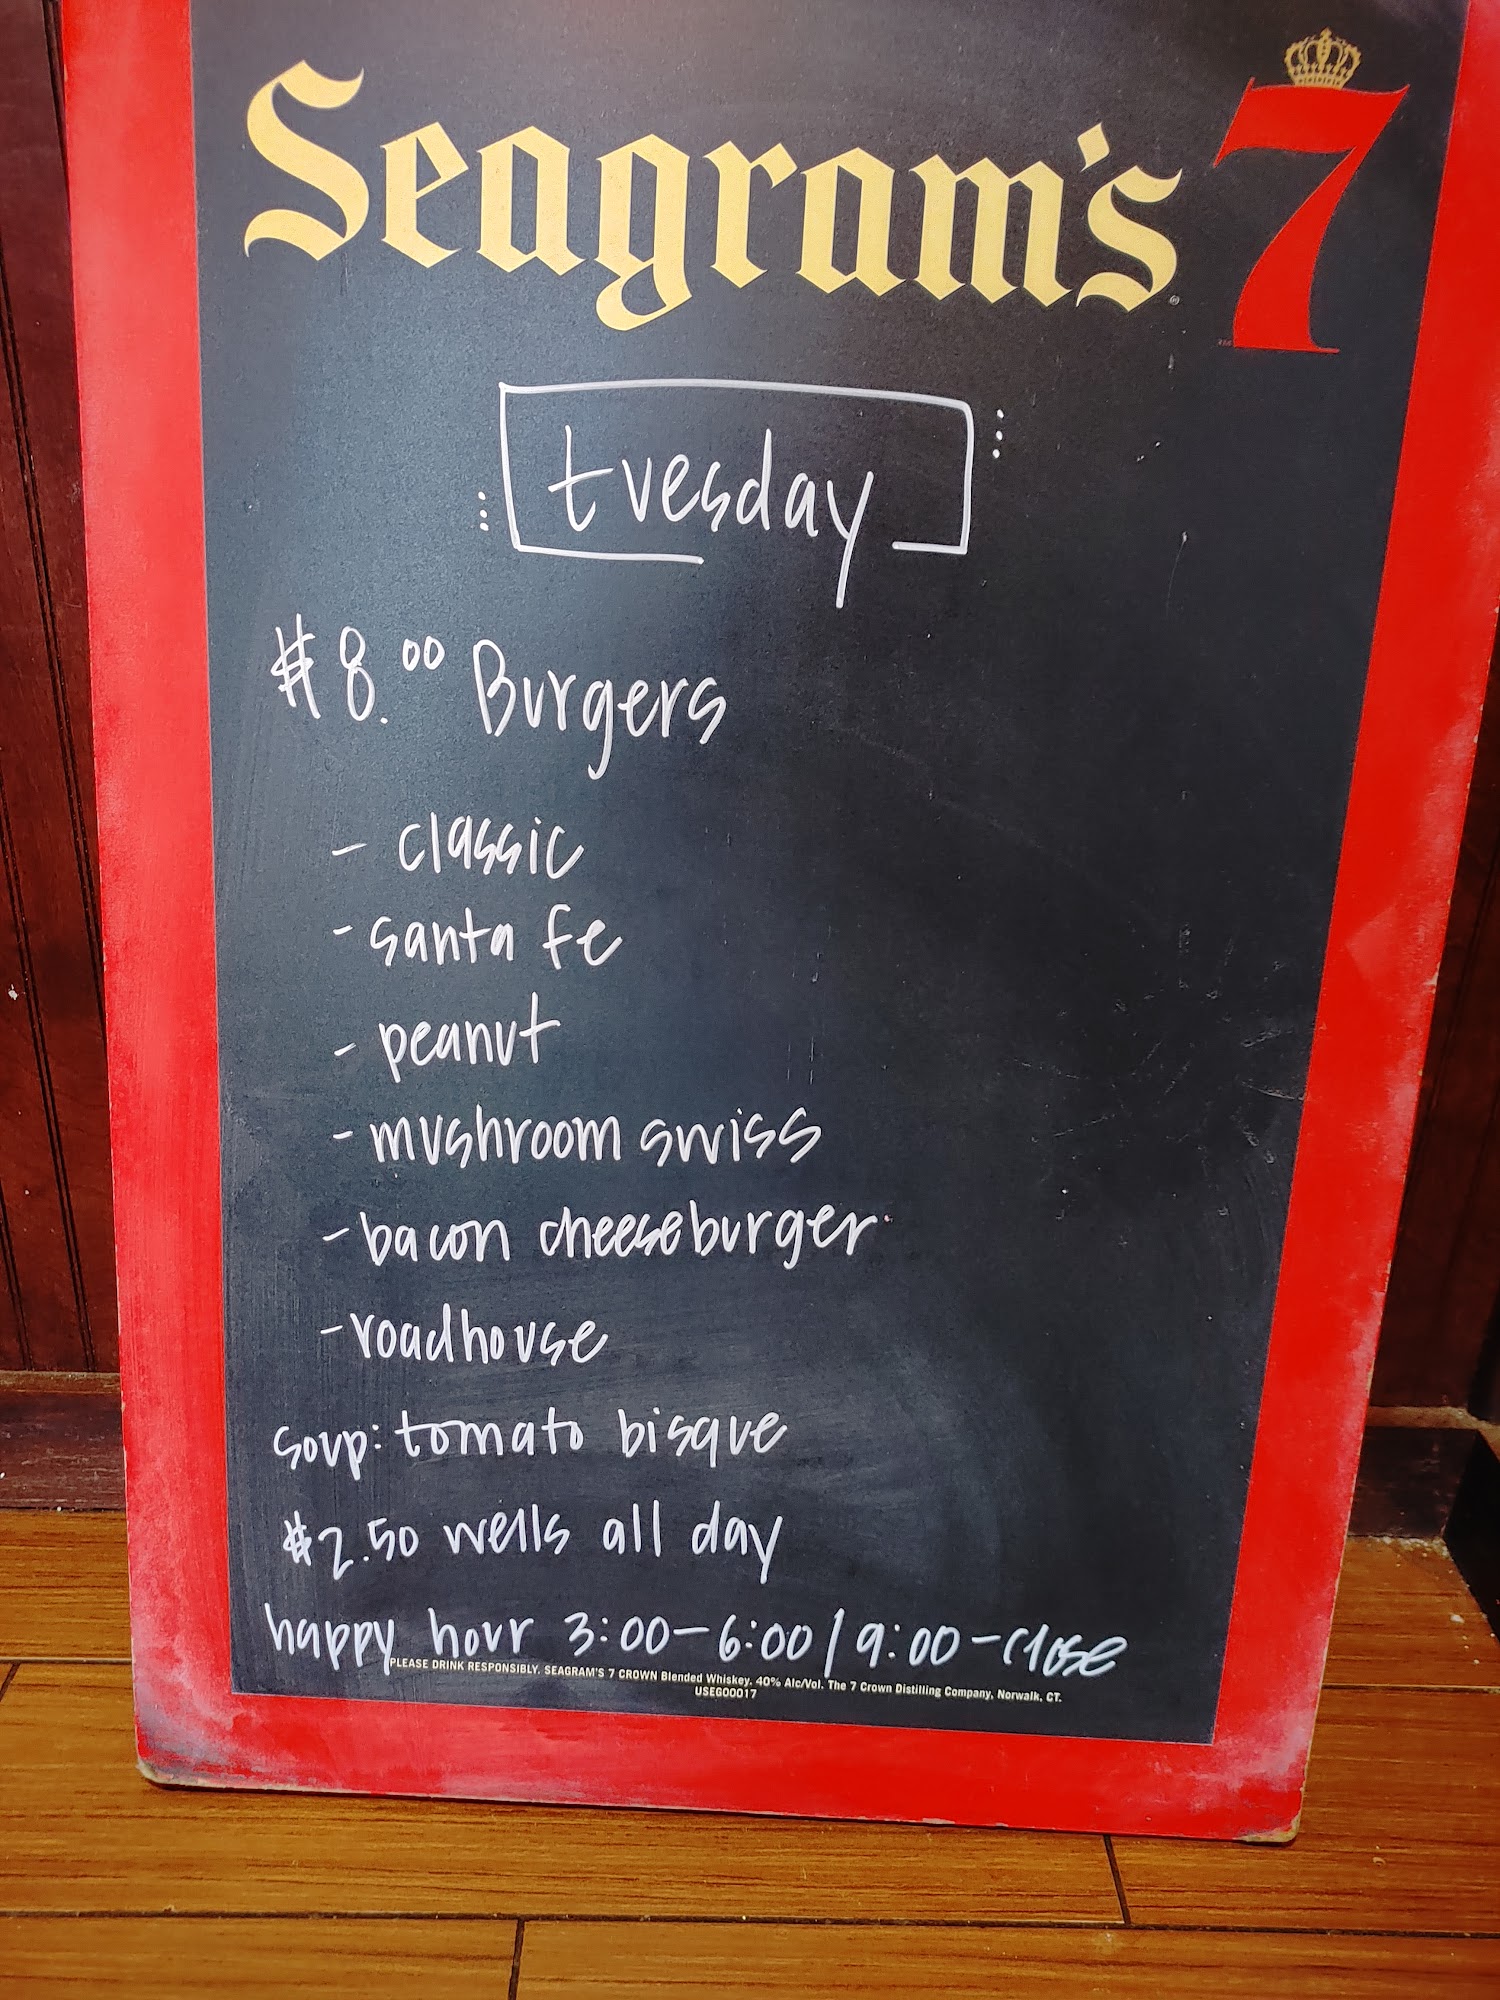 Seagram's 7
tuesday
$8.00 Burgers
- classic
- santa fe
- peanut
- mushroom swiss
- bacon cheeseburger
- roadhouse
soup: tomato bisque
$2.50 wells all day
happy hour 3:00-6:00/9:00-close
PLEASE DRINK RESPONSIBLY. SEAGRAM'S 7 CROWN Blended Whiskey. 40% Alc/Vol. The 7 Crown Distilling Company, Norwalk, CT.
USEG00017